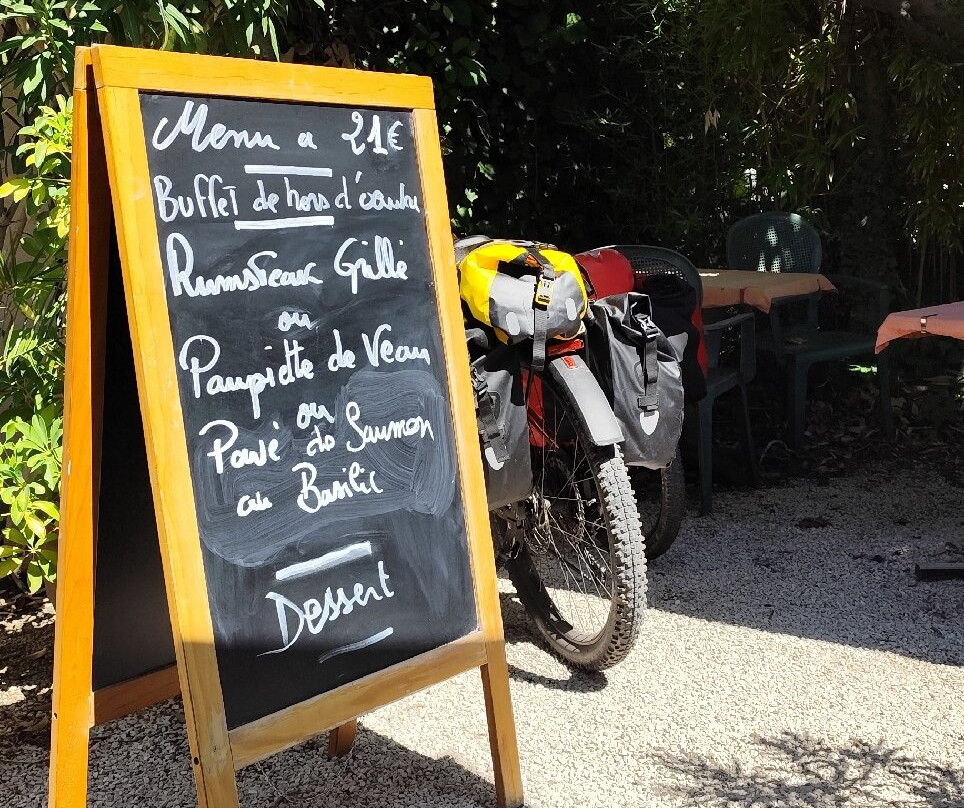 Menu a 21€
Buffet de hors d'œuvre
Rumsteack Grillé
ou
Paupiette de Veau
ou
Pavé de Saumon
au Basilic
Dessert